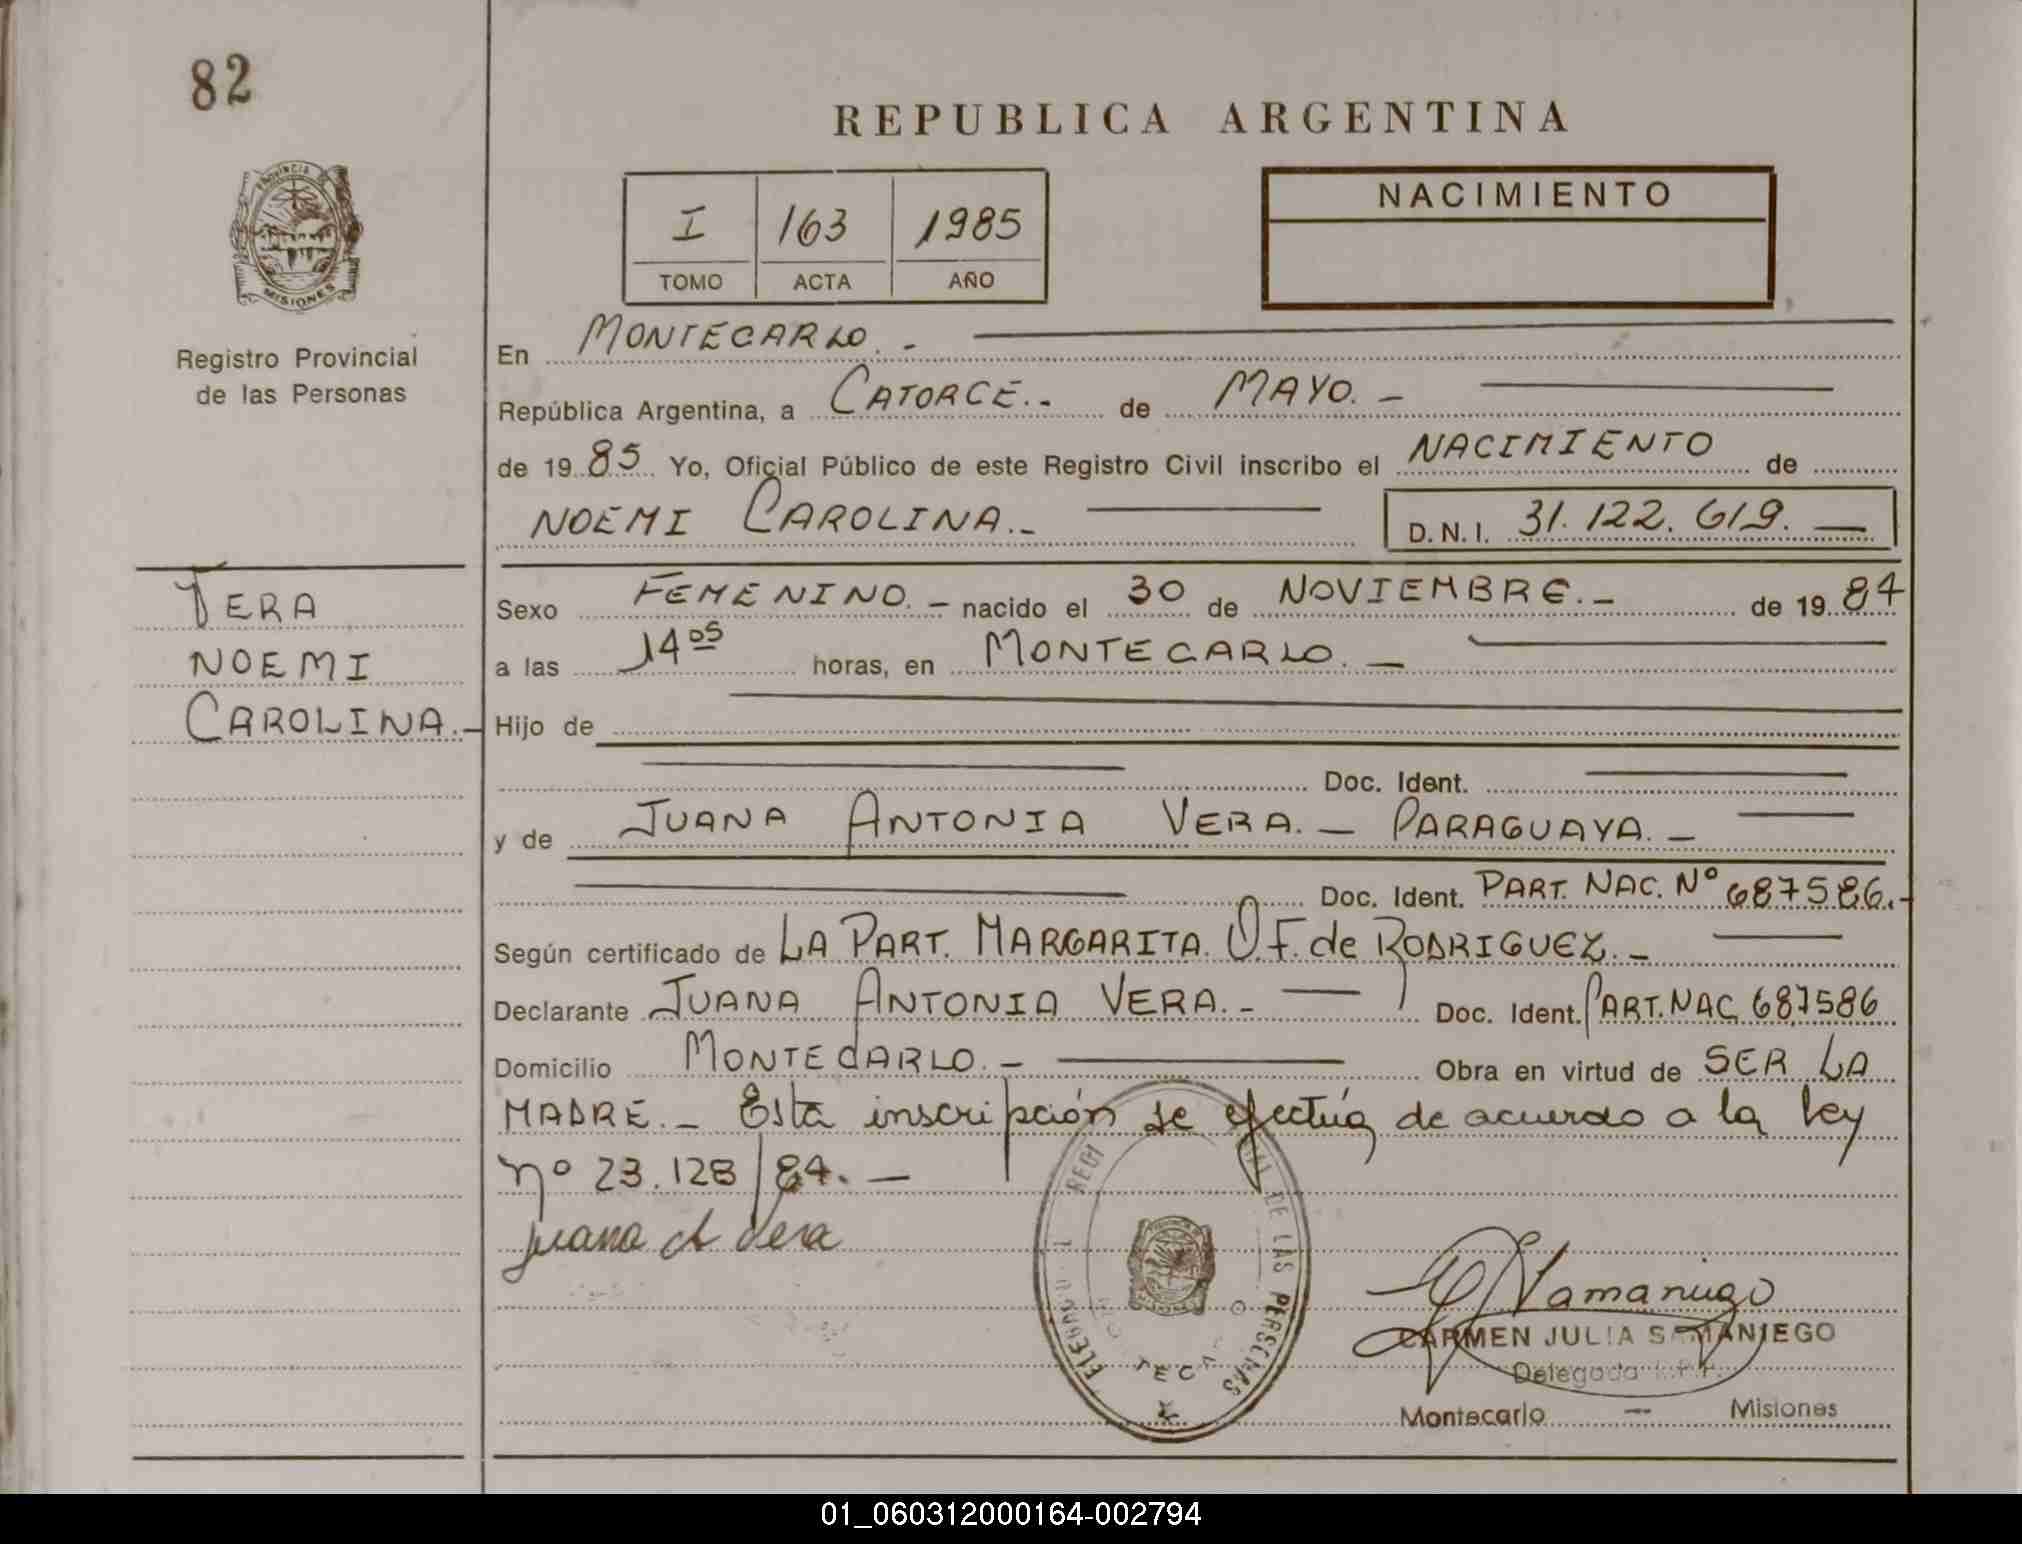 82
REPUBLICA ARGENTINA
PROVINCIA DE
MISIONES
Registro Provincial
de las Personas
I 163 1985
TOMO ACTA AÑO
NACIMIENTO
En MONTECARLO. -
República Argentina, a CATORCE.- de MAYO. -
de 1985 Yo, Oficial Público de este Registro Civil inscribo el NACIMIENTO de
NOEMI CAROLINA.- D.N.I. 31.122.619.
VERA
NOEMI
CAROLINA.-
Sexo FEMENINO.- nacido el 30 de NOVIEMBRE.- de 1984
a las 14 05 horas, en MONTECARLO. -
Hijo de
Doc. Ident.
y de JUANA ANTONIA VERA. - PARAGUAYA. -
Doc. Ident. PART. NAC. Nº 687586.-
Según certificado de LA PART. MARGARITA. O.F. de RODRIGUEZ.-
Declarante JUANA ANTONIA VERA.- Doc. Ident. PART. NAC. 687586
Domicilio MONTECARLO.- Obra en virtud de SER LA
MADRE.- Esta inscripción se efectúa de acuerdo a la ley
nº 23.128/84.-
Juana A Vera
DE LAS PERSONAS
Samaniego
CARMEN JULIA SAMANIEGO
Delegada
Montecarlo - Misiones
01_060312000164-002794